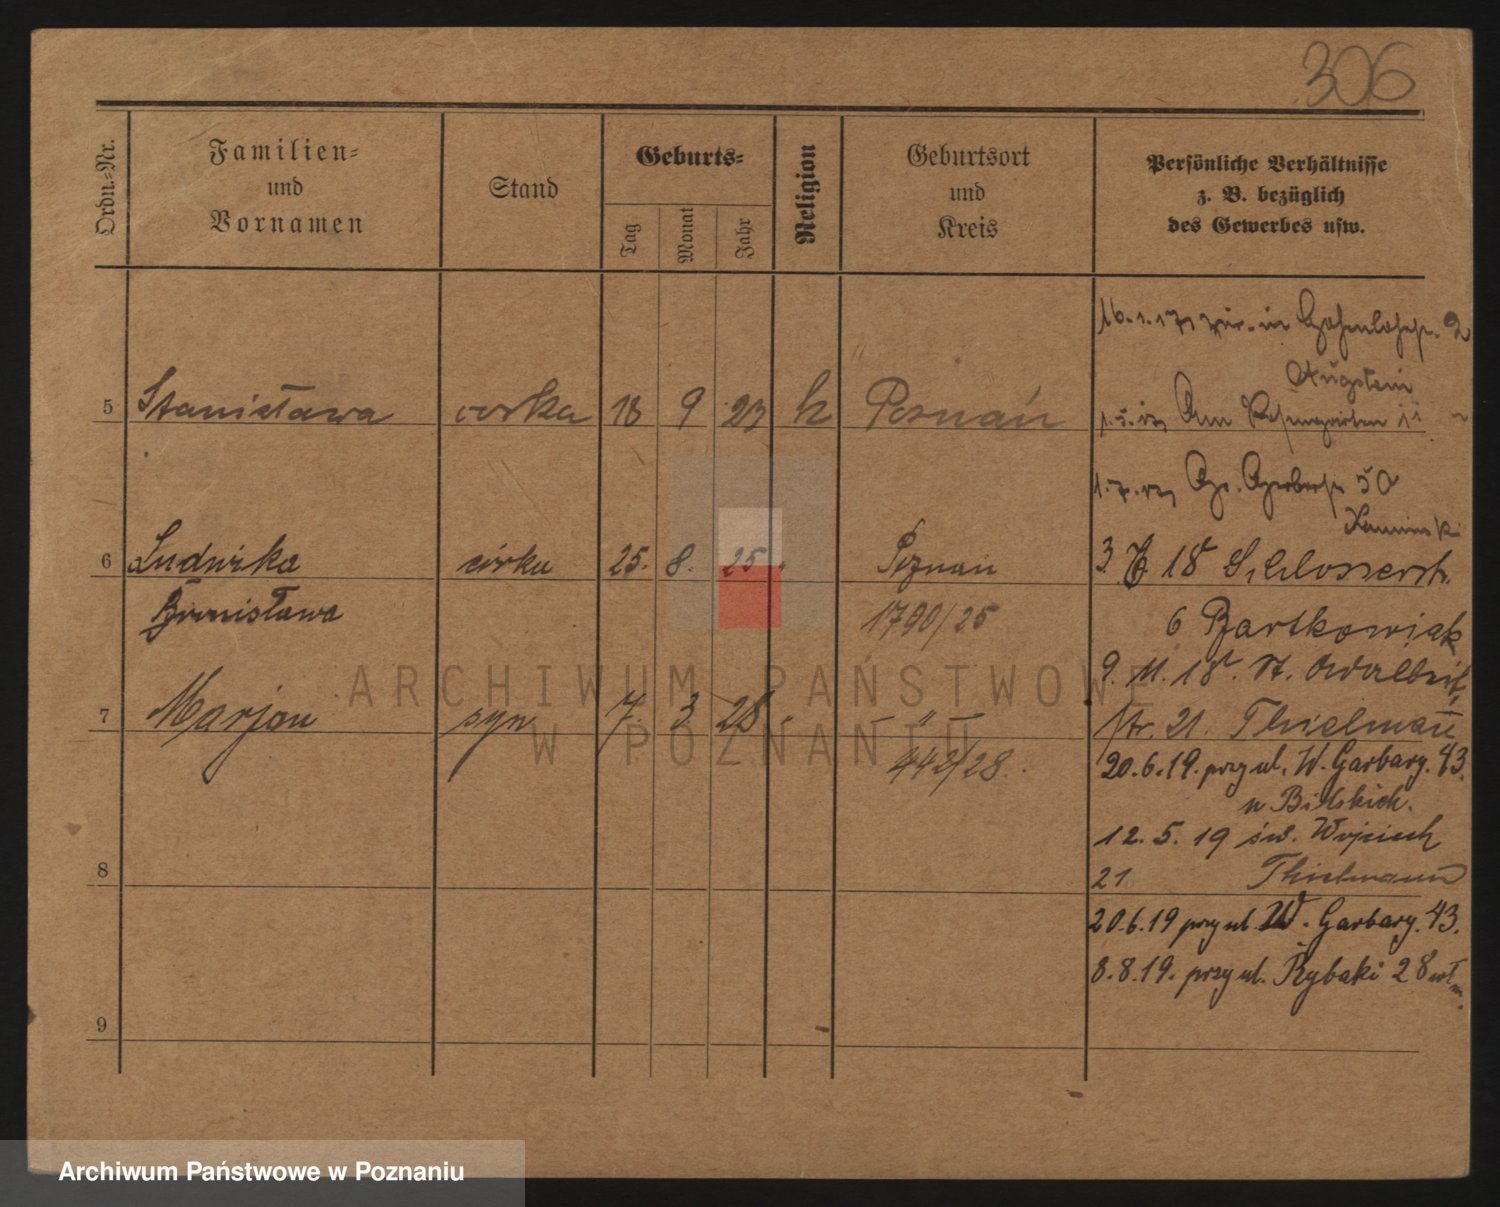 306
Ordn.-Nr.
Familien-
und
Vornamen
Stand
Geburts-
Tag
Monat
Jahr
Religion
Geburtsort
und
Kreis
Persönliche Verhältnisse
z. B. bezüglich
des Gewerbes usw.
5 Stanisława córka 18 9 23 k Poznań
6 Ludwika córka 25. 8. 25 " Poznań
Bronisława 1790/25
7 Marjan syn 7. 3. 28 " — " —
442/28.
8
9
Augstein
Am Rosengarten
Gr. Gerberstr. 50
Kaminski
18 Schlosserstr.
6 Bartkowiak
9. 11. 18. St. Adalbert
str. 21. Thielmann
20.6.19. przy ul. W. Garbary. 43.
u Bilskich.
12. 5. 19 św. Wojciech
21 Thielmann
20.6.19 przy ul. W. Garbary. 43.
8.8.19. przy ul. Rybaki 28
ARCHIWUM PAŃSTWOWE
W POZNANIU
Archiwum Państwowe w Poznaniu